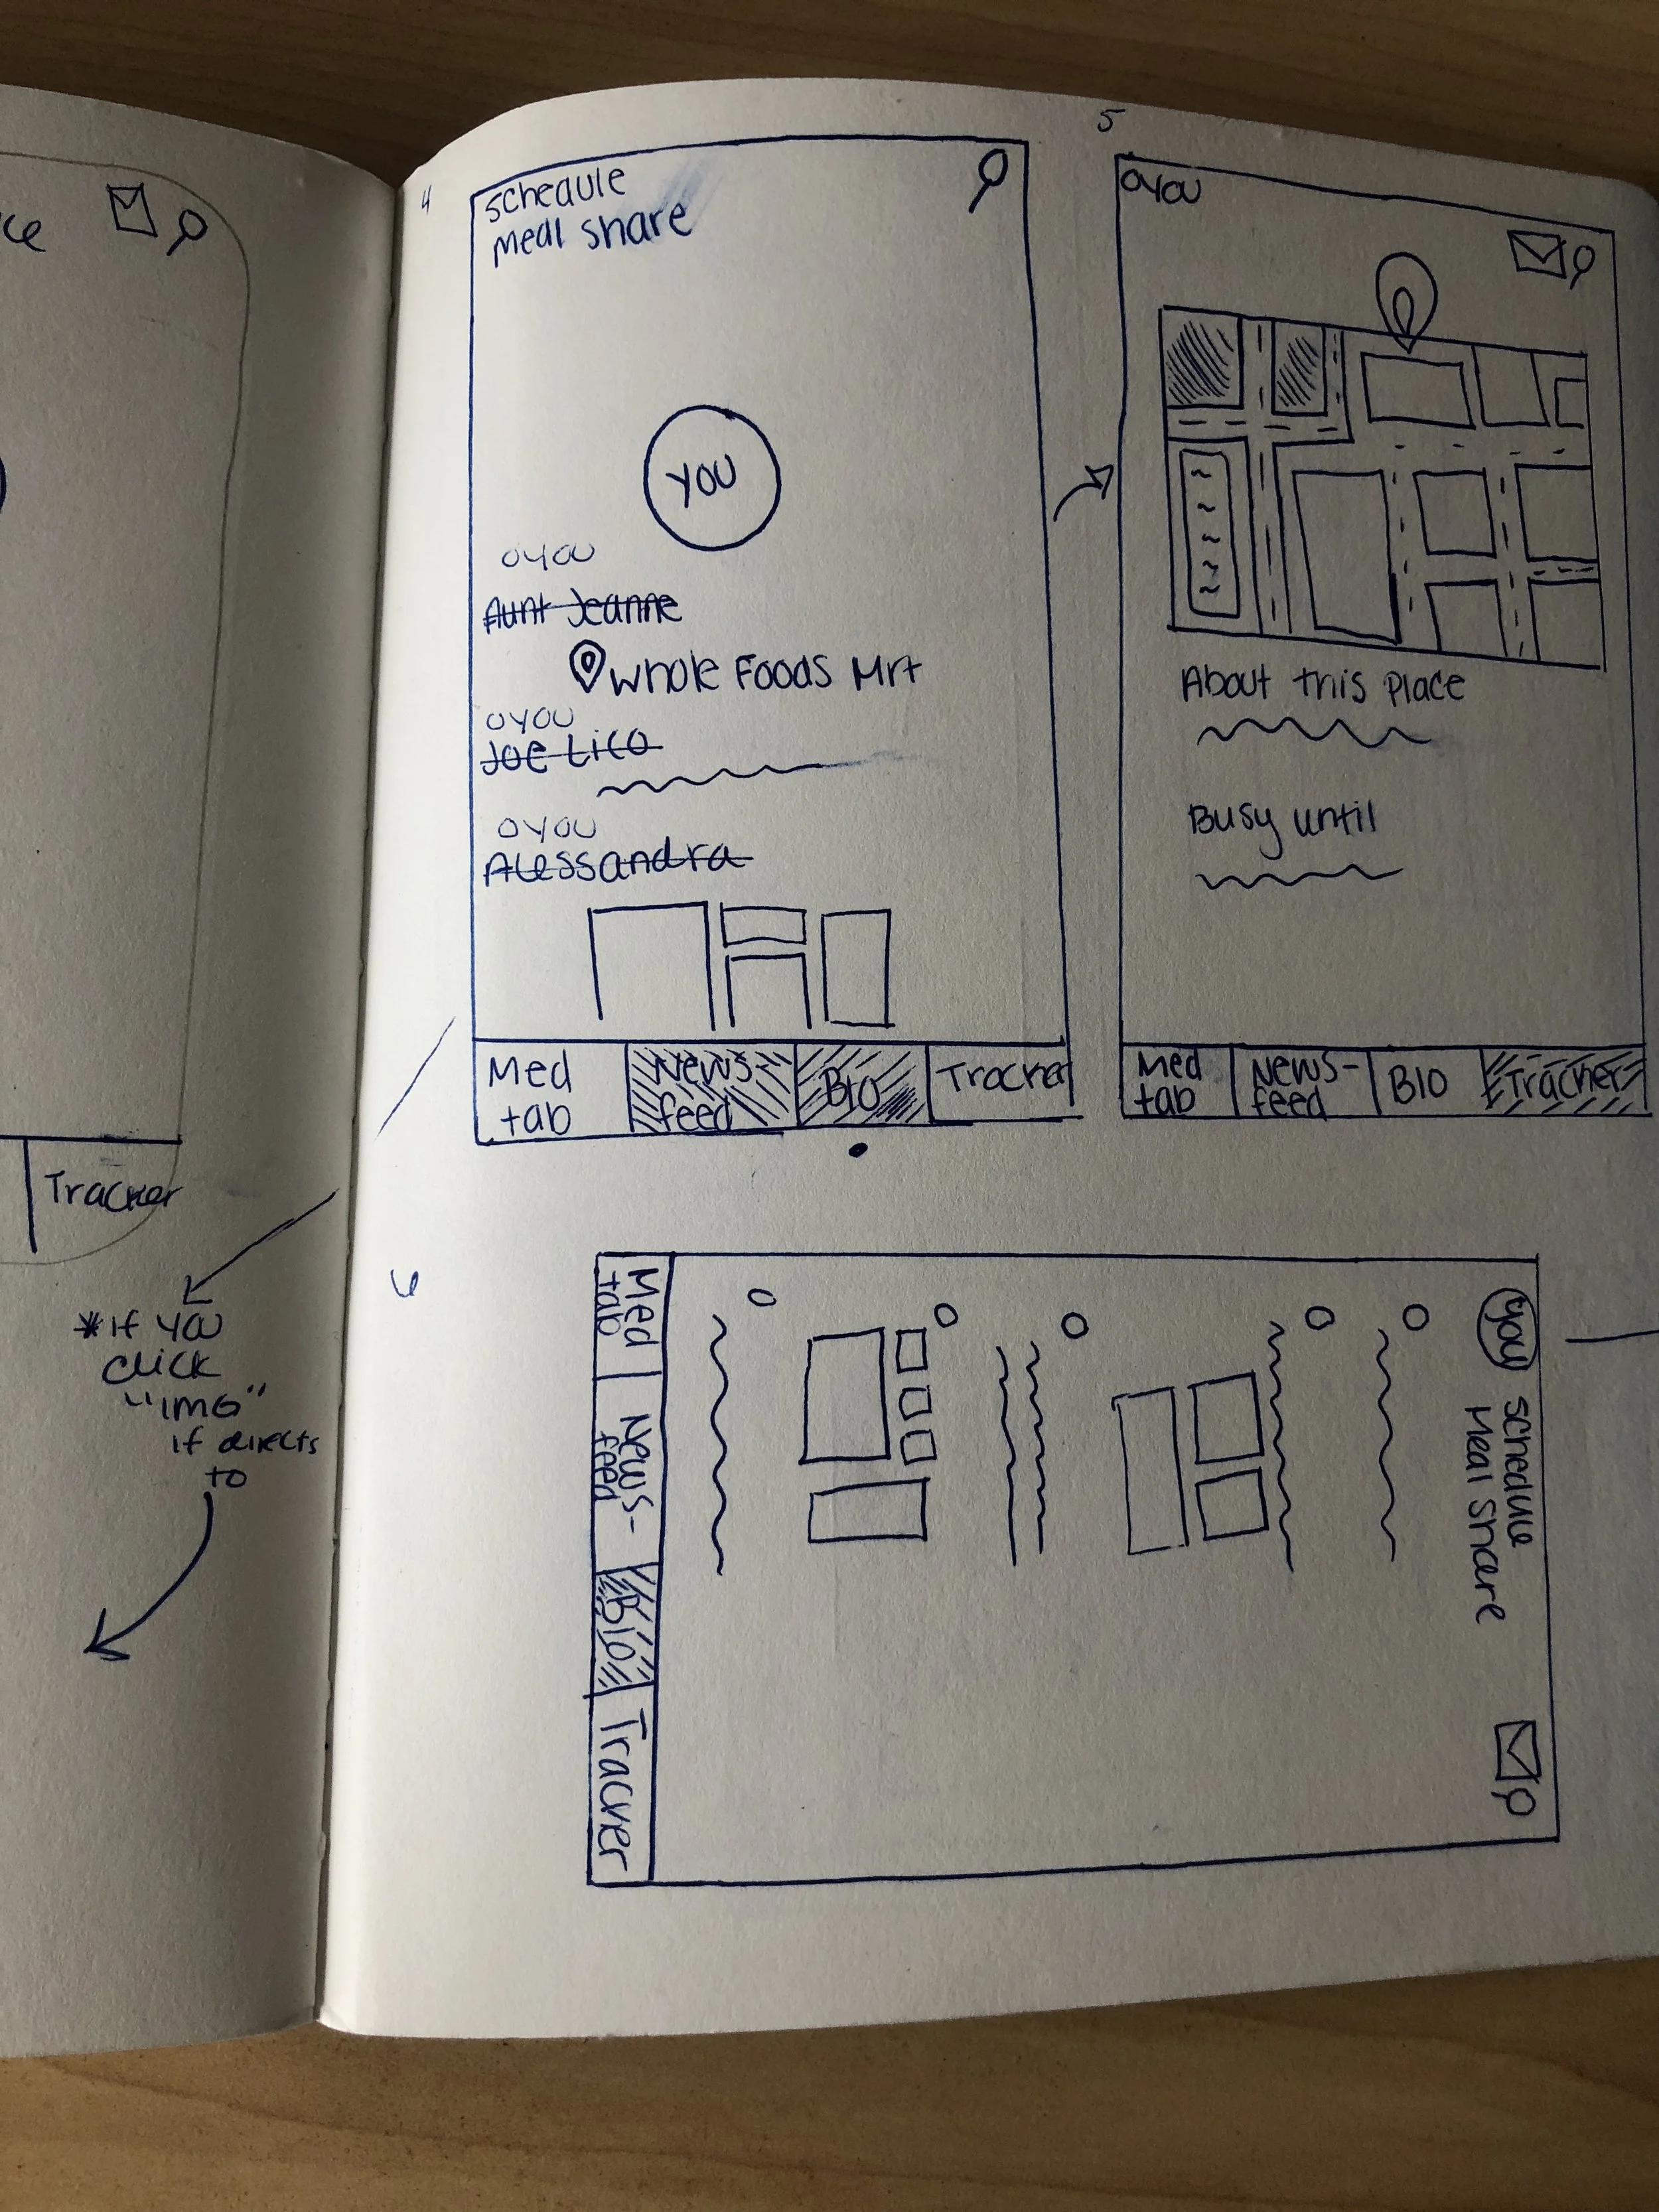 Tracker
*If you
click
"IMG"
if directs
to
4
schedule
meal share
YOU
O YOU
Aunt Jeanne
Whole Foods Mrt
O YOU
Joe Lico
O YOU
Alessandra
Med
tab
News-
feed
BIO
Tracker
5
O YOU
About this place
Busy until
Med
tab
News-
feed
BIO
Tracker
6
You
schedule
Meal share
Med
tab
News-
feed
Bio
Tracker